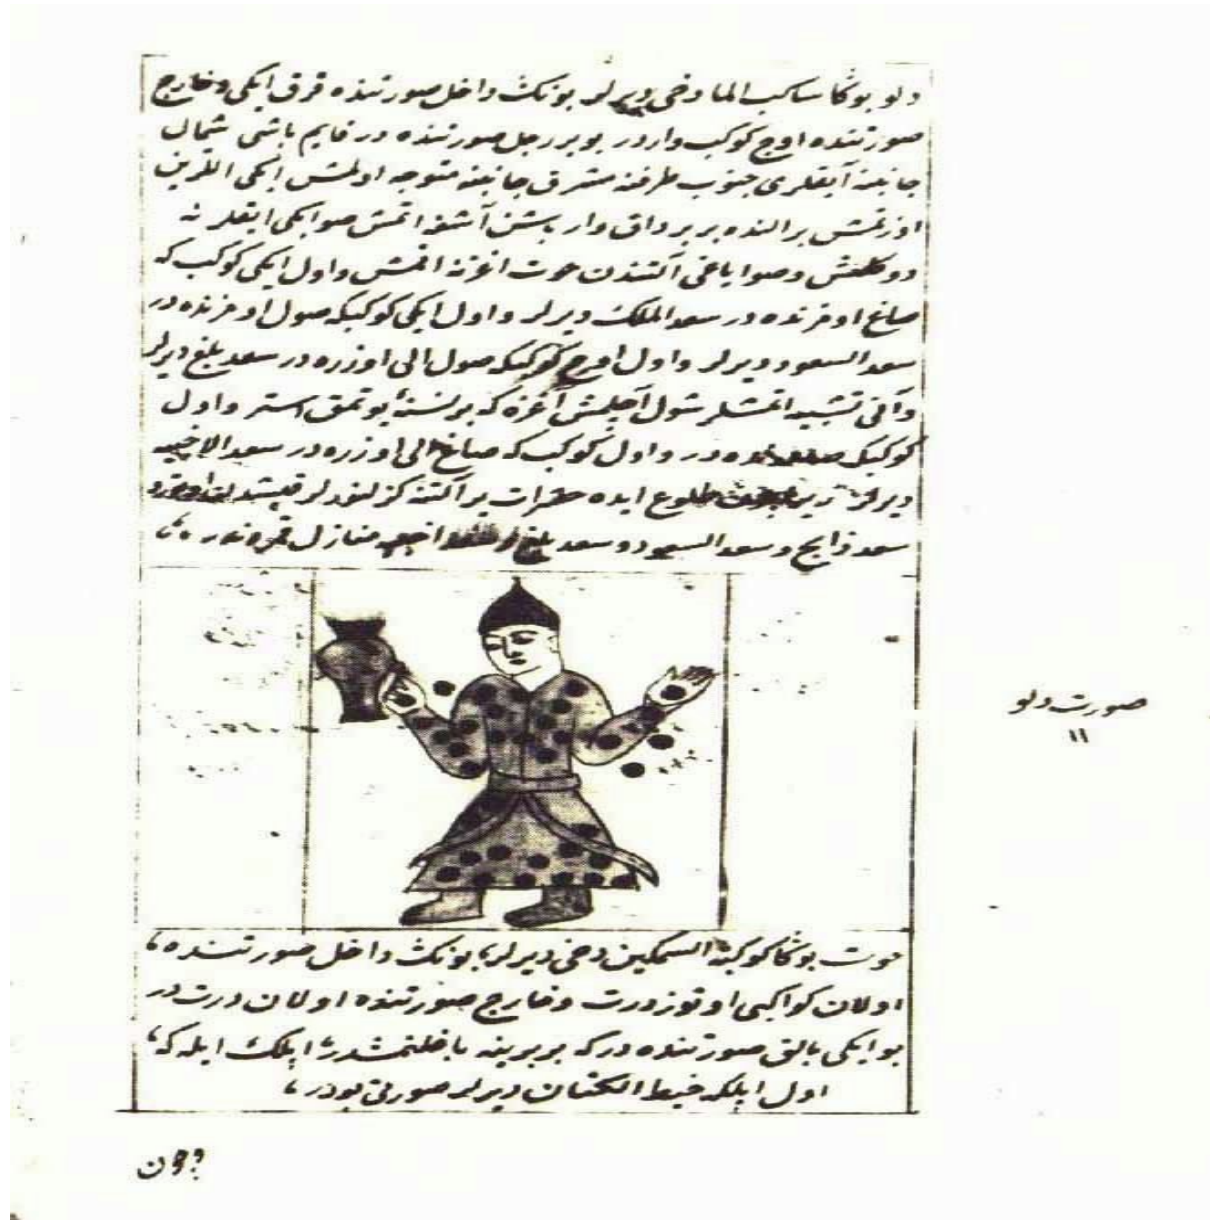 دلو بوڭا ساكب الما دخی ديرلر بونك داخل صورتنده قرق ايكی و خارج
صورتنده اوچ كوكب واردر بو بر رجل صورتنده در قايم باشی شمال
جانبنه آيقلری جنوب طرفنه مشرق جانبنه متوجه اولمش ايكی اللرين
اوزتمش بر النده بر برداق وار باشن آشغه اتمش صو ايكی ايقلرنه
دوكلمش و صو اياغی آلتندن حوت اغزنه اقمش و اول ايكی كوكب كه
صاغ اومزنده در سعد الملك ديرلر و اول ايكی كوكبكه صول اومزنده در
سعد السعود ديرلر و اول اوچ كوكبكه صول الی اوزره در سعد بلغ ديرلر
و آنی تشبيه اتمشلر شول آچلمش آغزه كه بر نسنۀ يوتمق استر و اول
كوكبكه در و اول كوكب كه صاغ الی اوزره در سعد الاخبيه
ديرلر طلوع ايده حشرات ير آلتنه كزلنورلر
سعد ذابح و سعد السعود و سعد بلغ منازل قمردندر
صورت دلو
١١
حوت بوڭا كوكبة السمكين دخی ديرلر بونك داخل صورتنده
اولان كواكبی اوتوز درت و خارج صورتنده اولان درت در
بو ايكی بالق صورتنده در كه بر برينه باغلنمشدر ايپلك ايله كه
اول ايپلكه خيط الكتان ديرلر صورتی بودر